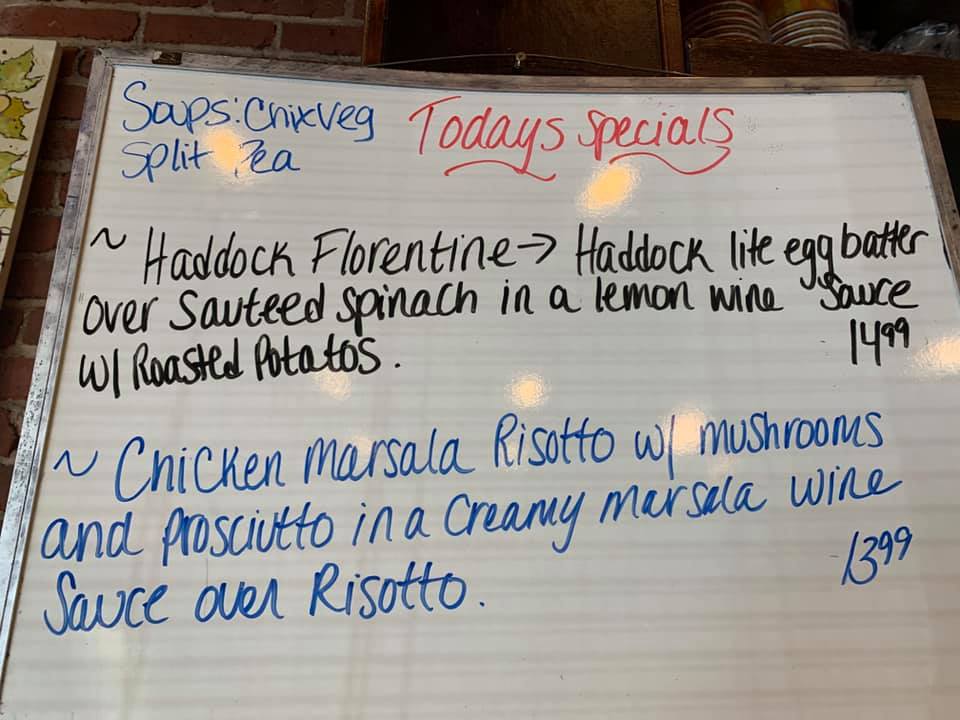 Soups: Chix Veg
Split Pea
Todays Specials
~ Haddock Florentine → Haddock lite egg batter
over Sauteed spinach in a lemon wine Sauce
w/ Roasted Potatos. 14.99
~ Chicken Marsala Risotto w/ mushrooms
and prosciutto in a Creamy marsala wine
Sauce over Risotto. 13.99